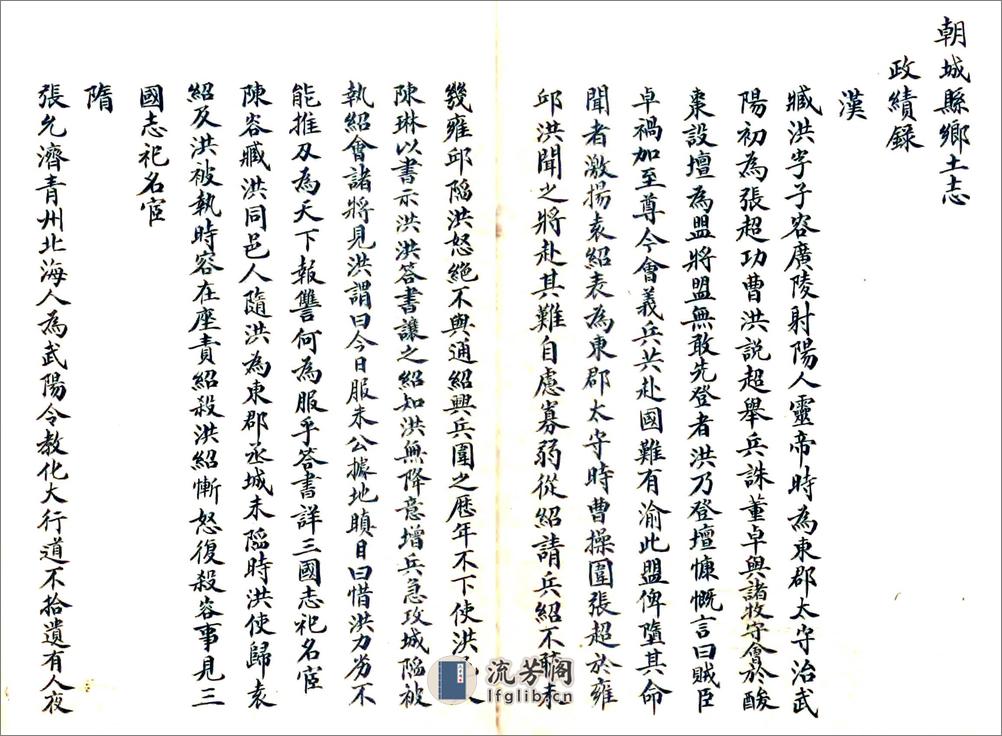 朝城縣鄉土志
政績錄
漢
臧洪字子容廣陵射陽人靈帝時為東郡太守治武
陽初為張超功曹洪説超舉兵誅董卓與諸牧守會於酸
棗設壇為盟將盟無敢先登者洪乃登壇慷慨言曰賊臣
卓禍加至尊今會義兵共赴國難有渝此盟俾墮其命
聞者激揚袁紹表為東郡太守時曹操圍張超於雍
邱洪聞之將赴其難自慮寡弱從紹請兵紹不聽未
幾雍邱陷洪怒絶不與通紹興兵圍之歷年不下使洪邑人
陳琳以書示洪洪答書讓之紹知洪無降意增兵急攻城陷被
執紹會諸將見洪謂曰今日服未公據地瞋目曰惜洪力劣不
能推刃為天下報讐何為服乎答書詳三國志祀名宦
陳容臧洪同邑人隨洪為東郡丞城未陷時洪使歸袁
紹及洪被執時容在座責紹殺洪紹慚怒復殺容事見三
國志祀名宦
隋
張允濟青州北海人為武陽令教化大行道不拾遺有人夜
流芳閣
lfglib.cn